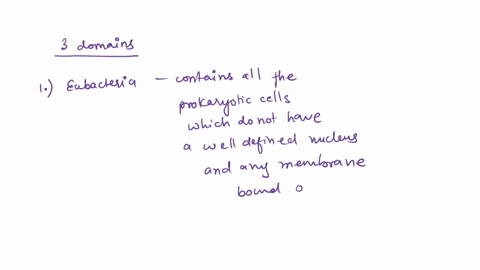 3 domains
1.) Eubacteria - contains all the
prokaryotic cells
which do not have
a well defined nucleus
and any membrane
bound o